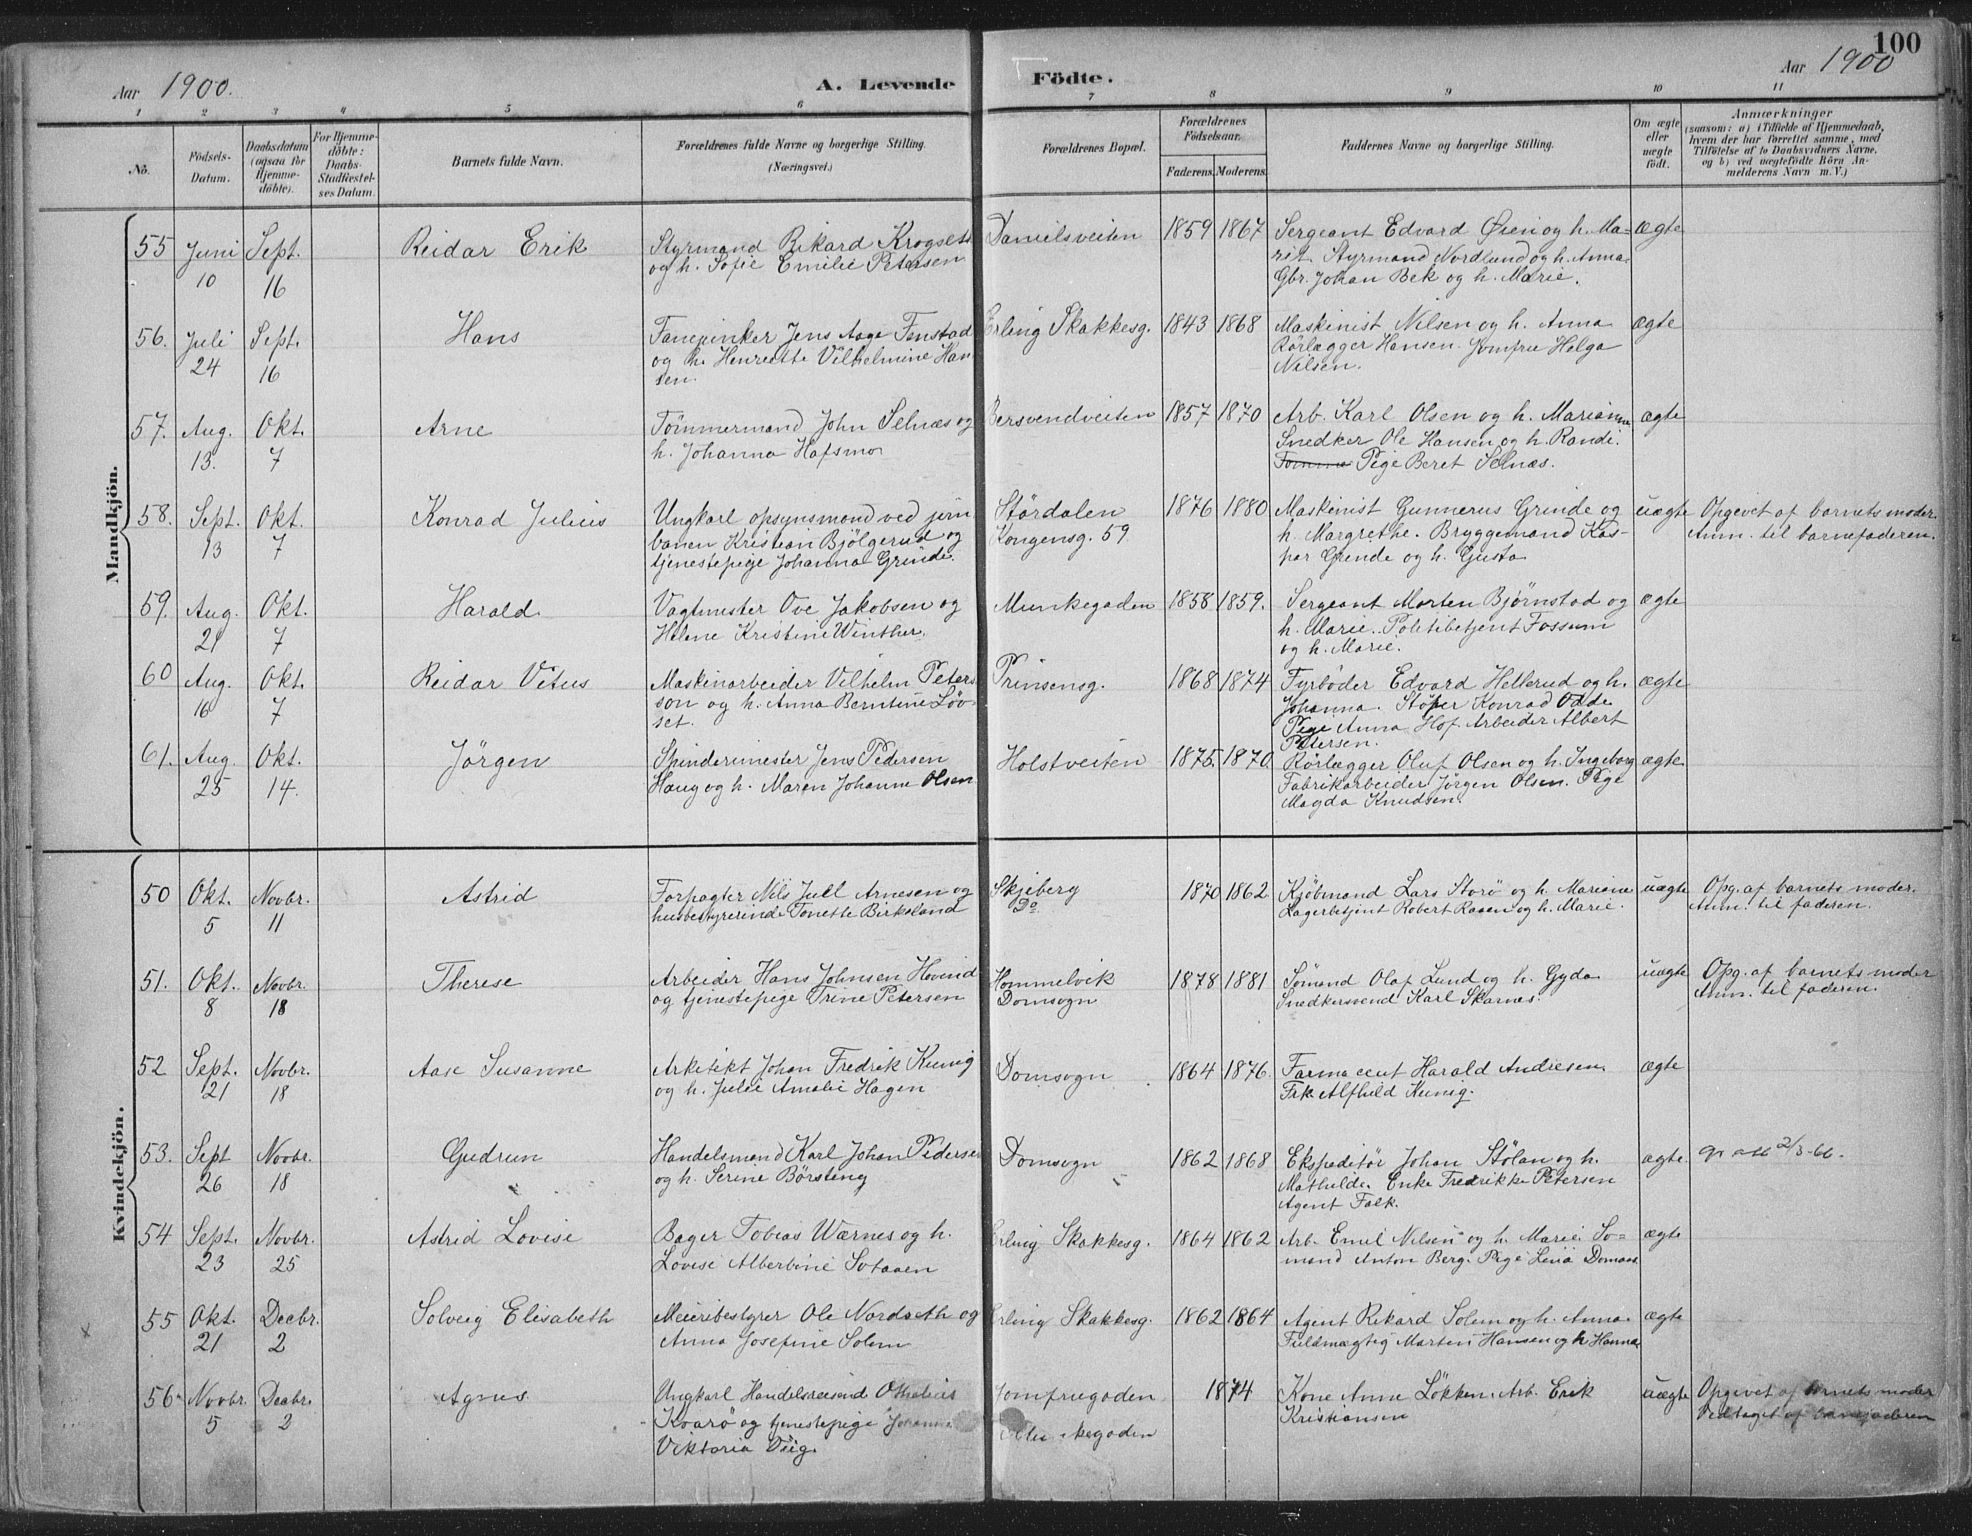 100
Aar 1900. A. Levende Födte. Aar 1900
1 2 3 4 5 6 7 8 9 10 11
No.
Födsels-Datum.
Daabsdatum (ogsaa for Hjemme-döbte).
For Hjemme-döbte: Daabs-Stadfæstel-ses Datum.
Barnets fulde Navn.
Forældrenes fulde Navne og borgerlige Stilling.
(Næringsvei.)
Forældrenes Bopæl.
Forældrenes Födselsaar.
Faderens. Moderens.
Faddernes Navne og borgerlige Stilling.
Om ægte eller uægte födt.
Anmærkninger
(saasom: a) i Tilfælde af Hjemmedaab,
hvem der har forrettet samme, med
Tilföielse af to Daabsvidners Navne,
og b) ved uægtefödte Börn An-
melderens Navn m. V.)
Mandkjön.
55 Juni 10 Sept. 16 Reidar Erik
Styrmand Rikard Krogseth
og h. Sofie Emilie Petersen
Danielsveiten 1859 1867
Sergeant Edvard Øien og h. Ma-
rit. Styrmand Nordlund og h. Anna.
Gbr. Johan Bek og h. Marie.
ægte
56. Juli 24 Sept. 16 Hans
Jens Aage Fenstad
og h. Henrette Vilhelmine Han
sen.
Erling Skakkesg. 1843 1868
Maskinist Nilsen og h. Anna
Rörlægger Hansen. Jomfru Helga
Nilsen.
ægte
57. Aug. 13. Okt. 7 Arne
Tömmermand John Selnæs og
h. Johanna Hafsmo
Bersvendveiten 1857 1870
Arb. Karl Olsen og h. Marianne
Snedker Ole Hansen og h. Randi.
Pige Beret Selnæs.
ægte
58. Sept. 13 Okt. 7 Konrad Julius
Ungkarl opsynsmand ved jern
banen Kristian Bjölgerud og
tjenestepige Johanna Grinde.
Stördalen
Kongensg. 59
1876 1880
Maskinist Gunnerus Grinde og
h. Margrethe. Bryggemand Kas-
par Grinde og h. Gusta
uægte
Opgivet af barnets moder.
Anm. til barnefaderen.
59. Aug. 21 Okt. 7 Harald
Vagtmester Ove Jakobsen og
Helene Kristine Winther.
Munkegaden 1858 1859.
Sergeant Morten Björnstad og
h. Marie. Politibetjent Fossum
og h. Marie.
ægte
60 Aug. 16 Okt. 7 Reidar Vitus
Maskinarbeider Vilhelm Peters
son og h. Anna Berntine Löv-
set.
Prinsensg. 1868 1874
Fyrböder Edvard Hellerud og h.
Johanna. Stöper Konrad Odde
Pige Anna Hof. Arbeider Albert
Petersen.
ægte
61. Aug. 25 Okt. 14. Jörgen
Spinderimester Jens Pedersen
Haug og h. Maren Johanne Olsen
Holstveiten 1875. 1870
Rörlægger Oluf Olsen og h. Ingeborg
Fabrikarbeider Jörgen Olsen. Pige
Magda Knudsen.
ægte
Kvindekjön.
50 Okt. 5 Novbr. 11 Astrid
Forpagter Nils Juel Arnesen og
husbestyrerinde Tonette Birkeland
Skjeberg
Do
1870 1862.
Kjöbmand Lars Storö og h. Mariane
Lagerbetjent Robert Rasen og h. Marie.
uægte
Opg. af barnets moder.
Anm. til faderen.
51. Okt. 8 Novbr. 18 Therese
Arbeider Hans Johnsen Hovind
og tjenestepige Trine Petersen
Hommelvik
Domsogn
1878 1881
Sömand Olaf Lund og h. Gyda
Snedkersvend Karl Skarnes.
uægte
Opg. af barnets moder
Anm. til faderen.
52 Sept. 21 Novbr. 18 Aase Susanne
Arkitekt Johan Fredrik Kunig
og h. Julie Amalie Hagen
Domsogn 1864 1876.
Farmaceut Harald Andresen.
Frk. Alfhild Kunig.
ægte
53. Sept 26 Novbr. 18 Gudrun
Handelsmand Karl Johan Pedersen
og h. Serine Börsting
Domsogn 1862 1868
Ekspeditör Johan Stölan og h.
Mathilde. Enke Fredrikke Petersen
Agent Falk.
ægte.
2/3-66.
54 Sept. 23 Novbr. 25 Astrid Lovise
Bager Tobias Wærnes og h.
Lovise Alberbine Sotaaen
Erling Skakkesg. 1864 1862
Arb. Emil Nilsen og h. Marie. Sö=
mand Anton Berg. Pige Lina Domaas
ægte
55 Okt. 21 Decbr. 2 Solveig Elisabeth
Meieribestyrer Ole Nordseth og
Anna Josefine Solem
Erling Skakkesg. 1862 1864
Agent Rikard Solem og h. Anna.
Fuldmægtig Martin Hansen og h. Hanna
ægte
56 Novbr. 5 Decbr. 2 Agnes
Ungkarl Handelsreisende Othelius
Kvarö og tjenestepige Johanne
Viktoria Düg.
Jomfrugaden
1874
Kone Anne Lökken. Arb. Erik
Kristiansen
uægte
Opgivet af barnets moder
Vedtaget af barnefaderen